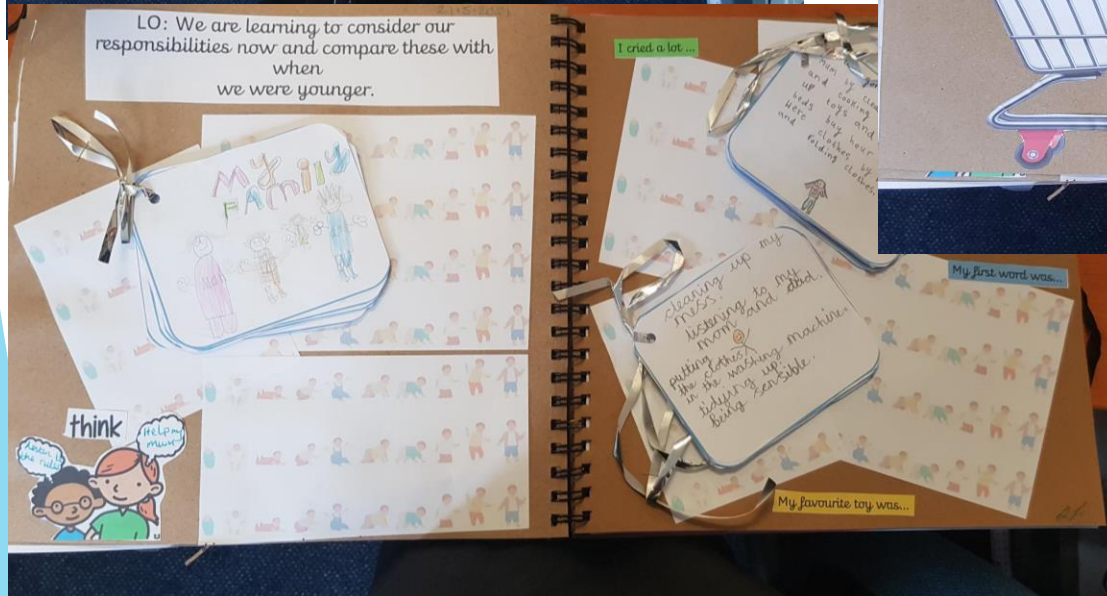 LO: We are learning to consider our
responsibilities now and compare these with
when
we were younger.
My
FAMily
think
Listen to
the rules
Help my
Mum
I cried a lot ...
mum by
and cooking
up toys and
beds
Here buy hour
and clothes by
folding clothes.
My first word was...
cleaning up my
mess.
listening to my
mom and dad.
putting
the clothes
in the washing machine.
tidying up.
being sensible.
My favourite toy was...